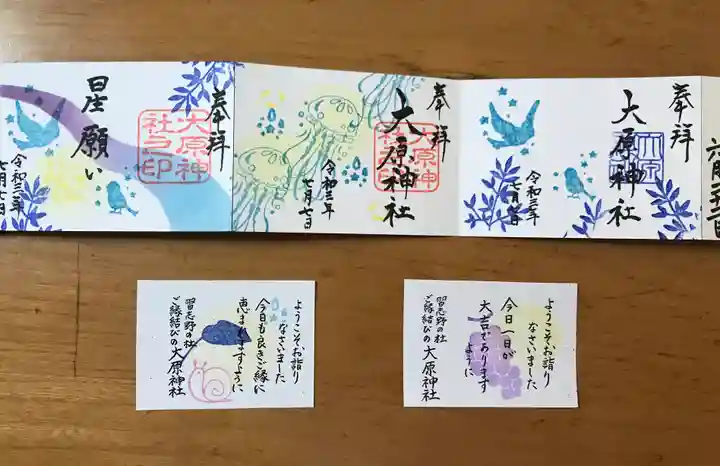 奉拝
大原神社
令和三年
七月七日
奉拝
大原神社
大原神
社之印
令和三年
七月七日
奉拝
大原神
社之印
願い
令和三年
七月七日
ようこそお詣り
なさいました
今日一日が
大吉であります
ように
習志野の杜
ご縁結びの大原神社
ようこそお詣り
なさいました
今日も良きご縁に
恵まれますように
習志野の杜
ご縁結びの大原神社